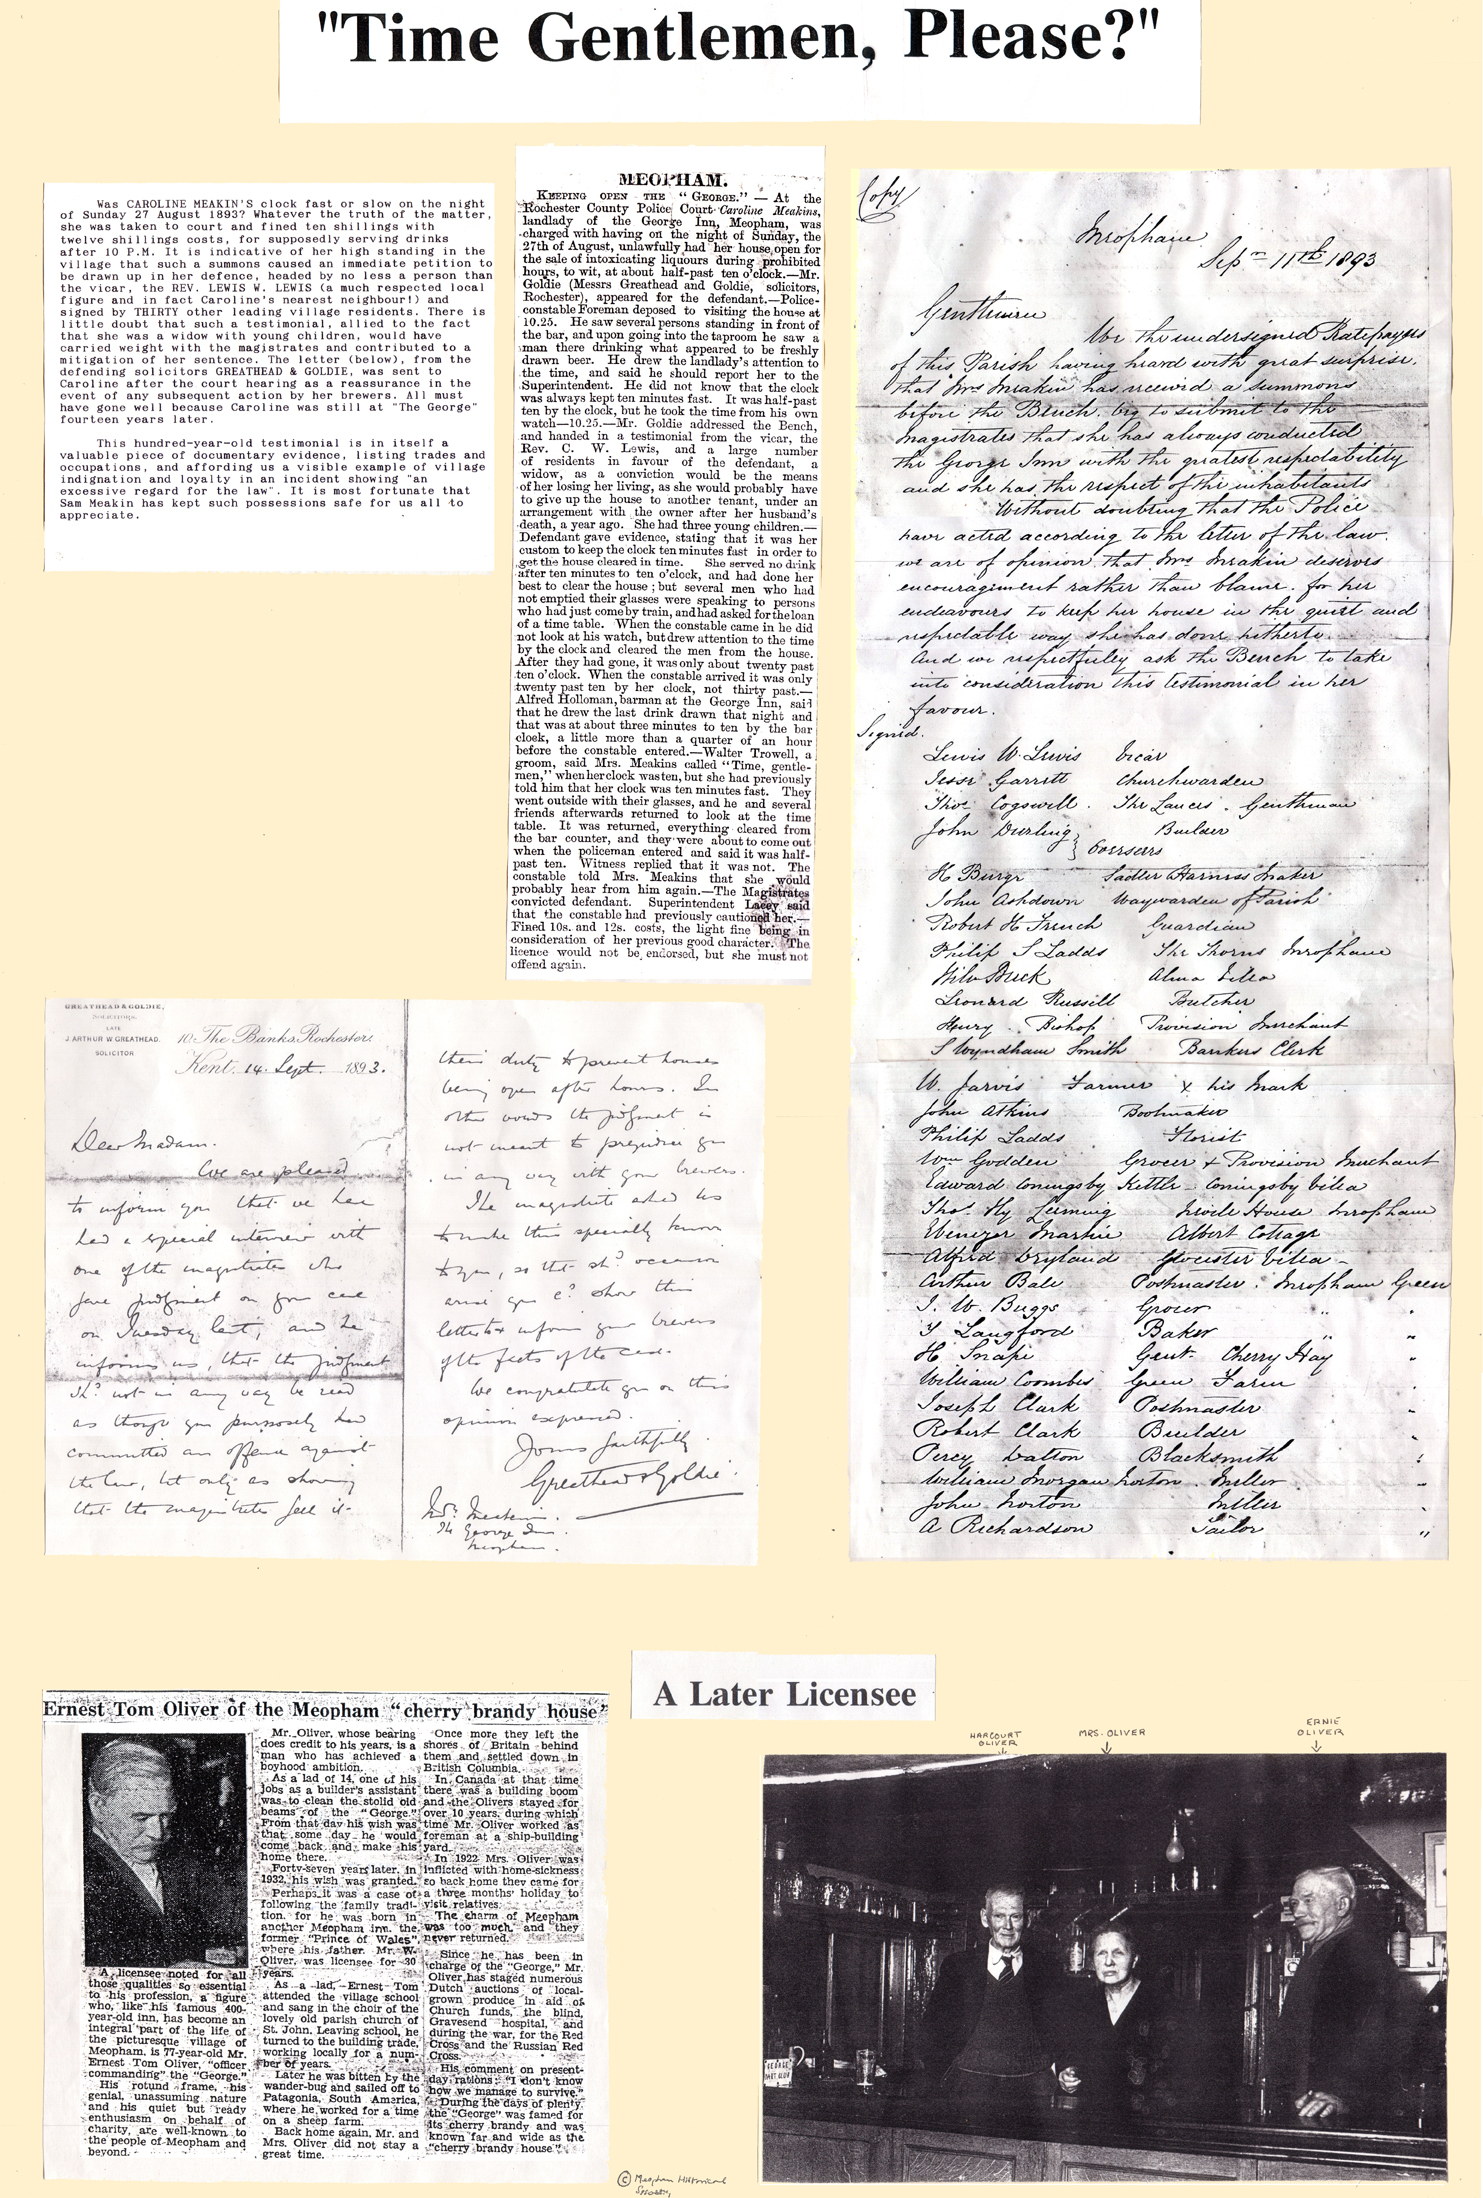 "Time Gentlemen, Please?"
Was CAROLINE MEAKIN'S clock fast or slow on the night
of Sunday 27 August 1893? Whatever the truth of the matter,
she was taken to court and fined ten shillings with
twelve shillings costs, for supposedly serving drinks
after 10 P.M. It is indicative of her high standing in the
village that such a summons caused an immediate petition to
be drawn up in her defence, headed by no less a person than
the vicar, the REV. LEWIS W. LEWIS (a much respected local
figure and in fact Caroline's nearest neighbour!) and
signed by THIRTY other leading village residents. There is
little doubt that such a testimonial, allied to the fact
that she was a widow with young children, would have
carried weight with the magistrates and contributed to a
mitigation of her sentence. The letter (below), from the
defending solicitors GREATHEAD & GOLDIE, was sent to
Caroline after the court hearing as a reassurance in the
event of any subsequent action by her brewers. All must
have gone well because Caroline was still at "The George"
fourteen years later.
This hundred-year-old testimonial is in itself a
valuable piece of documentary evidence, listing trades and
occupations, and affording us a visible example of village
indignation and loyalty in an incident showing "an
excessive regard for the law". It is most fortunate that
Sam Meakin has kept such possessions safe for us all to
appreciate.
MEOPHAM.
KEEPING OPEN THE "GEORGE." — At the
Rochester County Police Court Caroline Meakins,
landlady of the George Inn, Meopham, was
charged with having on the night of Sunday, the
27th of August, unlawfully had her house open for
the sale of intoxicating liquours during prohibited
hours, to wit, at about half-past ten o'clock.—Mr.
Goldie (Messrs Greathead and Goldie, solicitors,
Rochester), appeared for the defendant.—Police-
constable Foreman deposed to visiting the house at
10.25. He saw several persons standing in front of
the bar, and upon going into the taproom he saw a
man there drinking what appeared to be freshly
drawn beer. He drew the landlady's attention to
the time, and said he should report her to the
Superintendent. He did not know that the clock
was always kept ten minutes fast. It was half-past
ten by the clock, but he took the time from his own
watch—10.25.—Mr. Goldie addressed the Bench,
and handed in a testimonial from the vicar, the
Rev. C. W. Lewis, and a large number
of residents in favour of the defendant, a
widow, as a conviction would be the means
of her losing her living, as she would probably have
to give up the house to another tenant, under an
arrangement with the owner after her husband's
death, a year ago. She had three young children.—
Defendant gave evidence, stating that it was her
custom to keep the clock ten minutes fast in order to
get the house cleared in time. She served no drink
after ten minutes to ten o'clock, and had done her
best to clear the house; but several men who had
not emptied their glasses were speaking to persons
who had just come by train, and had asked for the loan
of a time table. When the constable came in he did
not look at his watch, but drew attention to the time
by the clock and cleared the men from the house.
After they had gone, it was only about twenty past
ten o'clock. When the constable arrived it was only
twenty past ten by her clock, not thirty past.—
Alfred Holloman, barman at the George Inn, said
that he drew the last drink drawn that night and
that was at about three minutes to ten by the bar
clock, a little more than a quarter of an hour
before the constable entered.—Walter Trowell, a
groom, said Mrs. Meakins called "Time, gentle-
men," when her clock was ten, but she had previously
told him that her clock was ten minutes fast. They
went outside with their glasses, and he and several
friends afterwards returned to look at the time
table. It was returned, everything cleared from
the bar counter, and they were about to come out
when the policeman entered and said it was half-
past ten. Witness replied that it was not. The
constable told Mrs. Meakins that she would
probably hear from him again.—The Magistrates
convicted defendant. Superintendent Lacey said
that the constable had previously cautioned her.—
Fined 10s. and 12s. costs, the light fine being in
consideration of her previous good character. The
licence would not be endorsed, but she must not
offend again.
Copy
Meopham
Sepr 11th 1893
Gentlemen
We the undersigned Ratepayers
of this Parish having heard with great surprise.
that Mrs Meakin has received a summons
before the Bench. beg to submit to the
Magistrates that she has always conducted
the George Inn with the greatest respectability
and she has the respect of the inhabitants
Without doubting that the Police
have acted according to the letter of the law.
we are of opinion that Mrs Meakin deserves
encouragement rather than blame. for her
endeavours to keep her house in the quiet and
respectable way she has done hitherto.
And we respectfuley ask the Bench to take
into consideration this testimonial in her
favour.
Signed.
Lewis W. Lewis Vicar
Jesse Garrett Churchwarden
Thos Cogswell. The Laucis. Gentleman
John Durling Builder
} Overseers
H Burge Sadler Harness Maker
John Ashdown Waywarden of Parish
Robert H French Guardian
Philip S Ladds The Thorns Meopham
Wilm Buck Alma Villa
Leonard Russell Butcher
Henry Bishop Provision Merchant
S Wyndham Smith Bankers Clerk
W. Jarvis Farmer X his Mark
John Atkins Bootmaker
Philip Ladds Florist
Wm Godden Grocer & Provision Merchant
Edward Coningsby Kettle Coningsby Villa
Thos. Hy Leeming Nevile House Meopham
Ebenezer Martin Albert Cottage
Alfred Dryland Glocester Villa -
Arthur Bale Postmaster. Meopham Green
J. W. Buggs Grocer " "
T Langford Baker " "
H Snape Gent. Cherry Hay "
William Coombes Green Farm "
Joseph Clark Postmaster "
Robert Clark Builder "
Percy Dalton Blacksmith "
William Morgan Norton. Miller "
John Norton Miller "
A Richardson Tailor "
GREATHEAD & GOLDIE,
Solicitors.
LATE
J. ARTHUR W GREATHEAD.
SOLICITOR
10. The Banks, Rochester.
Kent. 14. Sept. 1893.
Dear Madam.
We are pleased
to inform you that we have
had a special interview with
one of the magistrates who
gave judgment on your case
on Tuesday last, and he
informs us, that the judgment
shd not in any way be read
as though you purposely had
committed an offence against
the law, but only as showing
that the magistrates feel it
their duty to prevent houses
being open after hours. In
other words the judgment is
not meant to prejudice you
in any way with your brewers.
The magistrate asked us
to make this specially known
to you, so that shd occasion
arise you cd show this
letter to & inform your brewers
of the facts of the case.
We congratulate you on this
opinion expressed.
Yours faithfully
Greathead & Goldie.
Mrs. Meakin.
The George Inn.
Meopham.
A Later Licensee
Ernest Tom Oliver of the Meopham "cherry brandy house"
A licensee noted for all
those qualities so essential
to his profession, a figure
who, like his famous 400-
year-old inn, has become an
integral part of the life of
the picturesque village of
Meopham, is 77-year-old Mr.
Ernest Tom Oliver, "officer
commanding" the "George."
His rotund frame, his
genial, unassuming nature
and his quiet but ready
enthusiasm on behalf of
charity, are well-known to
the people of Meopham and
beyond.
Mr. Oliver, whose bearing
does credit to his years, is a
man who has achieved a
boyhood ambition.
As a lad of 14, one of his
jobs as a builder's assistant
was to clean the stolid old
beams of the "George."
From that day his wish was
that some day he would
come back and make his
home there.
Forty-seven years later, in
1932, his wish was granted.
Perhaps it was a case of
following the family tradi-
tion, for he was born in
another Meopham inn, the
former "Prince of Wales",
where his father, Mr. W.
Oliver, was licensee for 30
years.
As a lad, Ernest Tom
attended the village school
and sang in the choir of the
lovely old parish church of
St. John. Leaving school, he
turned to the building trade,
working locally for a num-
ber of years.
Later he was bitten by the
wander-bug and sailed off to
Patagonia, South America,
where he worked for a time
on a sheep farm.
Back home again, Mr. and
Mrs. Oliver did not stay a
great time.
Once more they left the
shores of Britain behind
them and settled down in
British Columbia.
In Canada at that time
there was a building boom
and the Olivers stayed for
over 10 years, during which
time Mr. Oliver worked as
foreman at a ship-building
yard.
In 1922 Mrs. Oliver was
inflicted with home-sickness
so back home they came for
a three months' holiday to
visit relatives.
The charm of Meopham
was too much and they
never returned.
Since he has been in
charge of the "George," Mr.
Oliver has staged numerous
Dutch auctions of local-
grown produce in aid of
Church funds, the blind,
Gravesend hospital, and
during the war, for the Red
Cross and the Russian Red
Cross.
His comment on present-
day rations: "I don't know
how we manage to survive."
During the days of plenty
the "George" was famed for
its cherry brandy and was
known far and wide as the
"cherry brandy house."
HARCOURT
OLIVER
MRS. OLIVER
ERNIE
OLIVER
GEORGE
DART CLUB
© Meopham Historical
Society